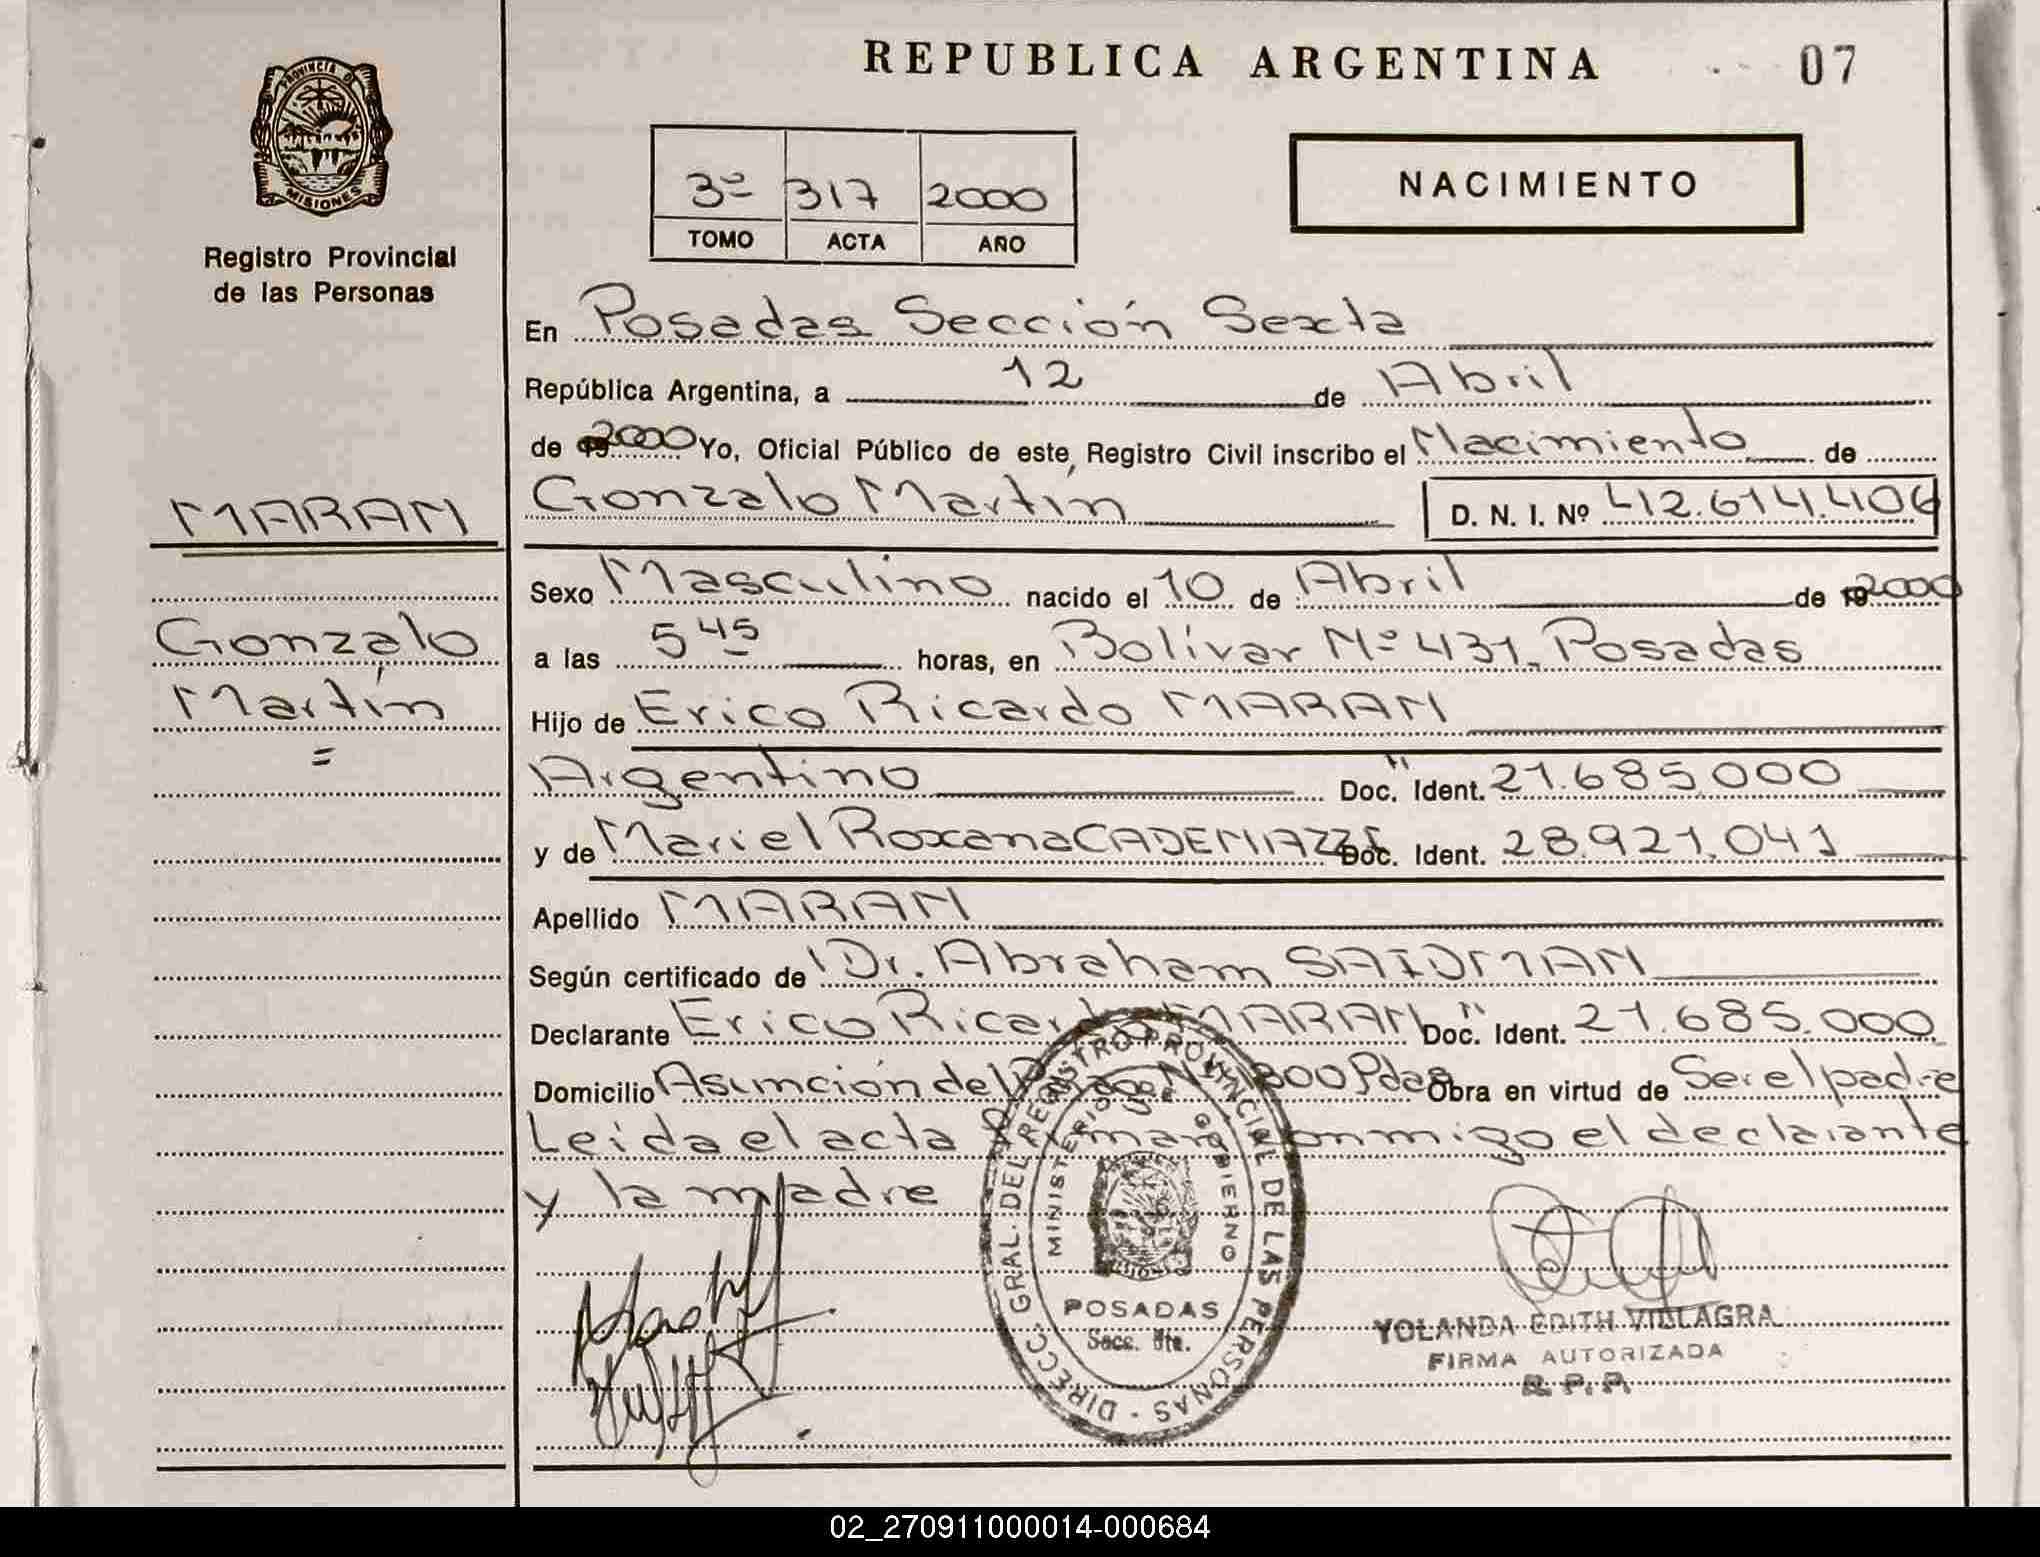 REPUBLICA ARGENTINA
07
PROVINCIA DE
MISIONES
Registro Provincial
de las Personas
3º 317 2000
TOMO ACTA AÑO
NACIMIENTO
En Posadas Sección Sexta
República Argentina, a 12 de Abril
de 2000 Yo, Oficial Público de este Registro Civil inscribo el Nacimiento de
Gonzalo Martín D. N. I. Nº 42.614.406
MARAN
Gonzalo
Martín
=
Sexo Masculino nacido el 10 de Abril de 2000
a las 5 45 horas, en Bolívar Nº 431. Posadas
Hijo de Erico Ricardo MARAN
Argentino Doc. " Ident. 21.685.000
y de Mariel Roxana CADEMAZZI Doc. Ident. 28.921.041
Apellido MARAN
Según certificado de Dr. Abraham SAIDMAN
Declarante Erico Ricardo MARAN Doc. " Ident. 21.685.000
Domicilio Asunción del Pdas Obra en virtud de Ser el padre
Leida el acta conmigo el declarante
y la madre
DIRECC. GRAL. DEL REGISTRO PROVINCIAL DE LAS PERSONAS -
MINISTERIO DE GOBIERNO
POSADAS
Secc. 6ta.
YOLANDA EDITH VILLAGRA
FIRMA AUTORIZADA
R. P. P.
02_270911000014-000684